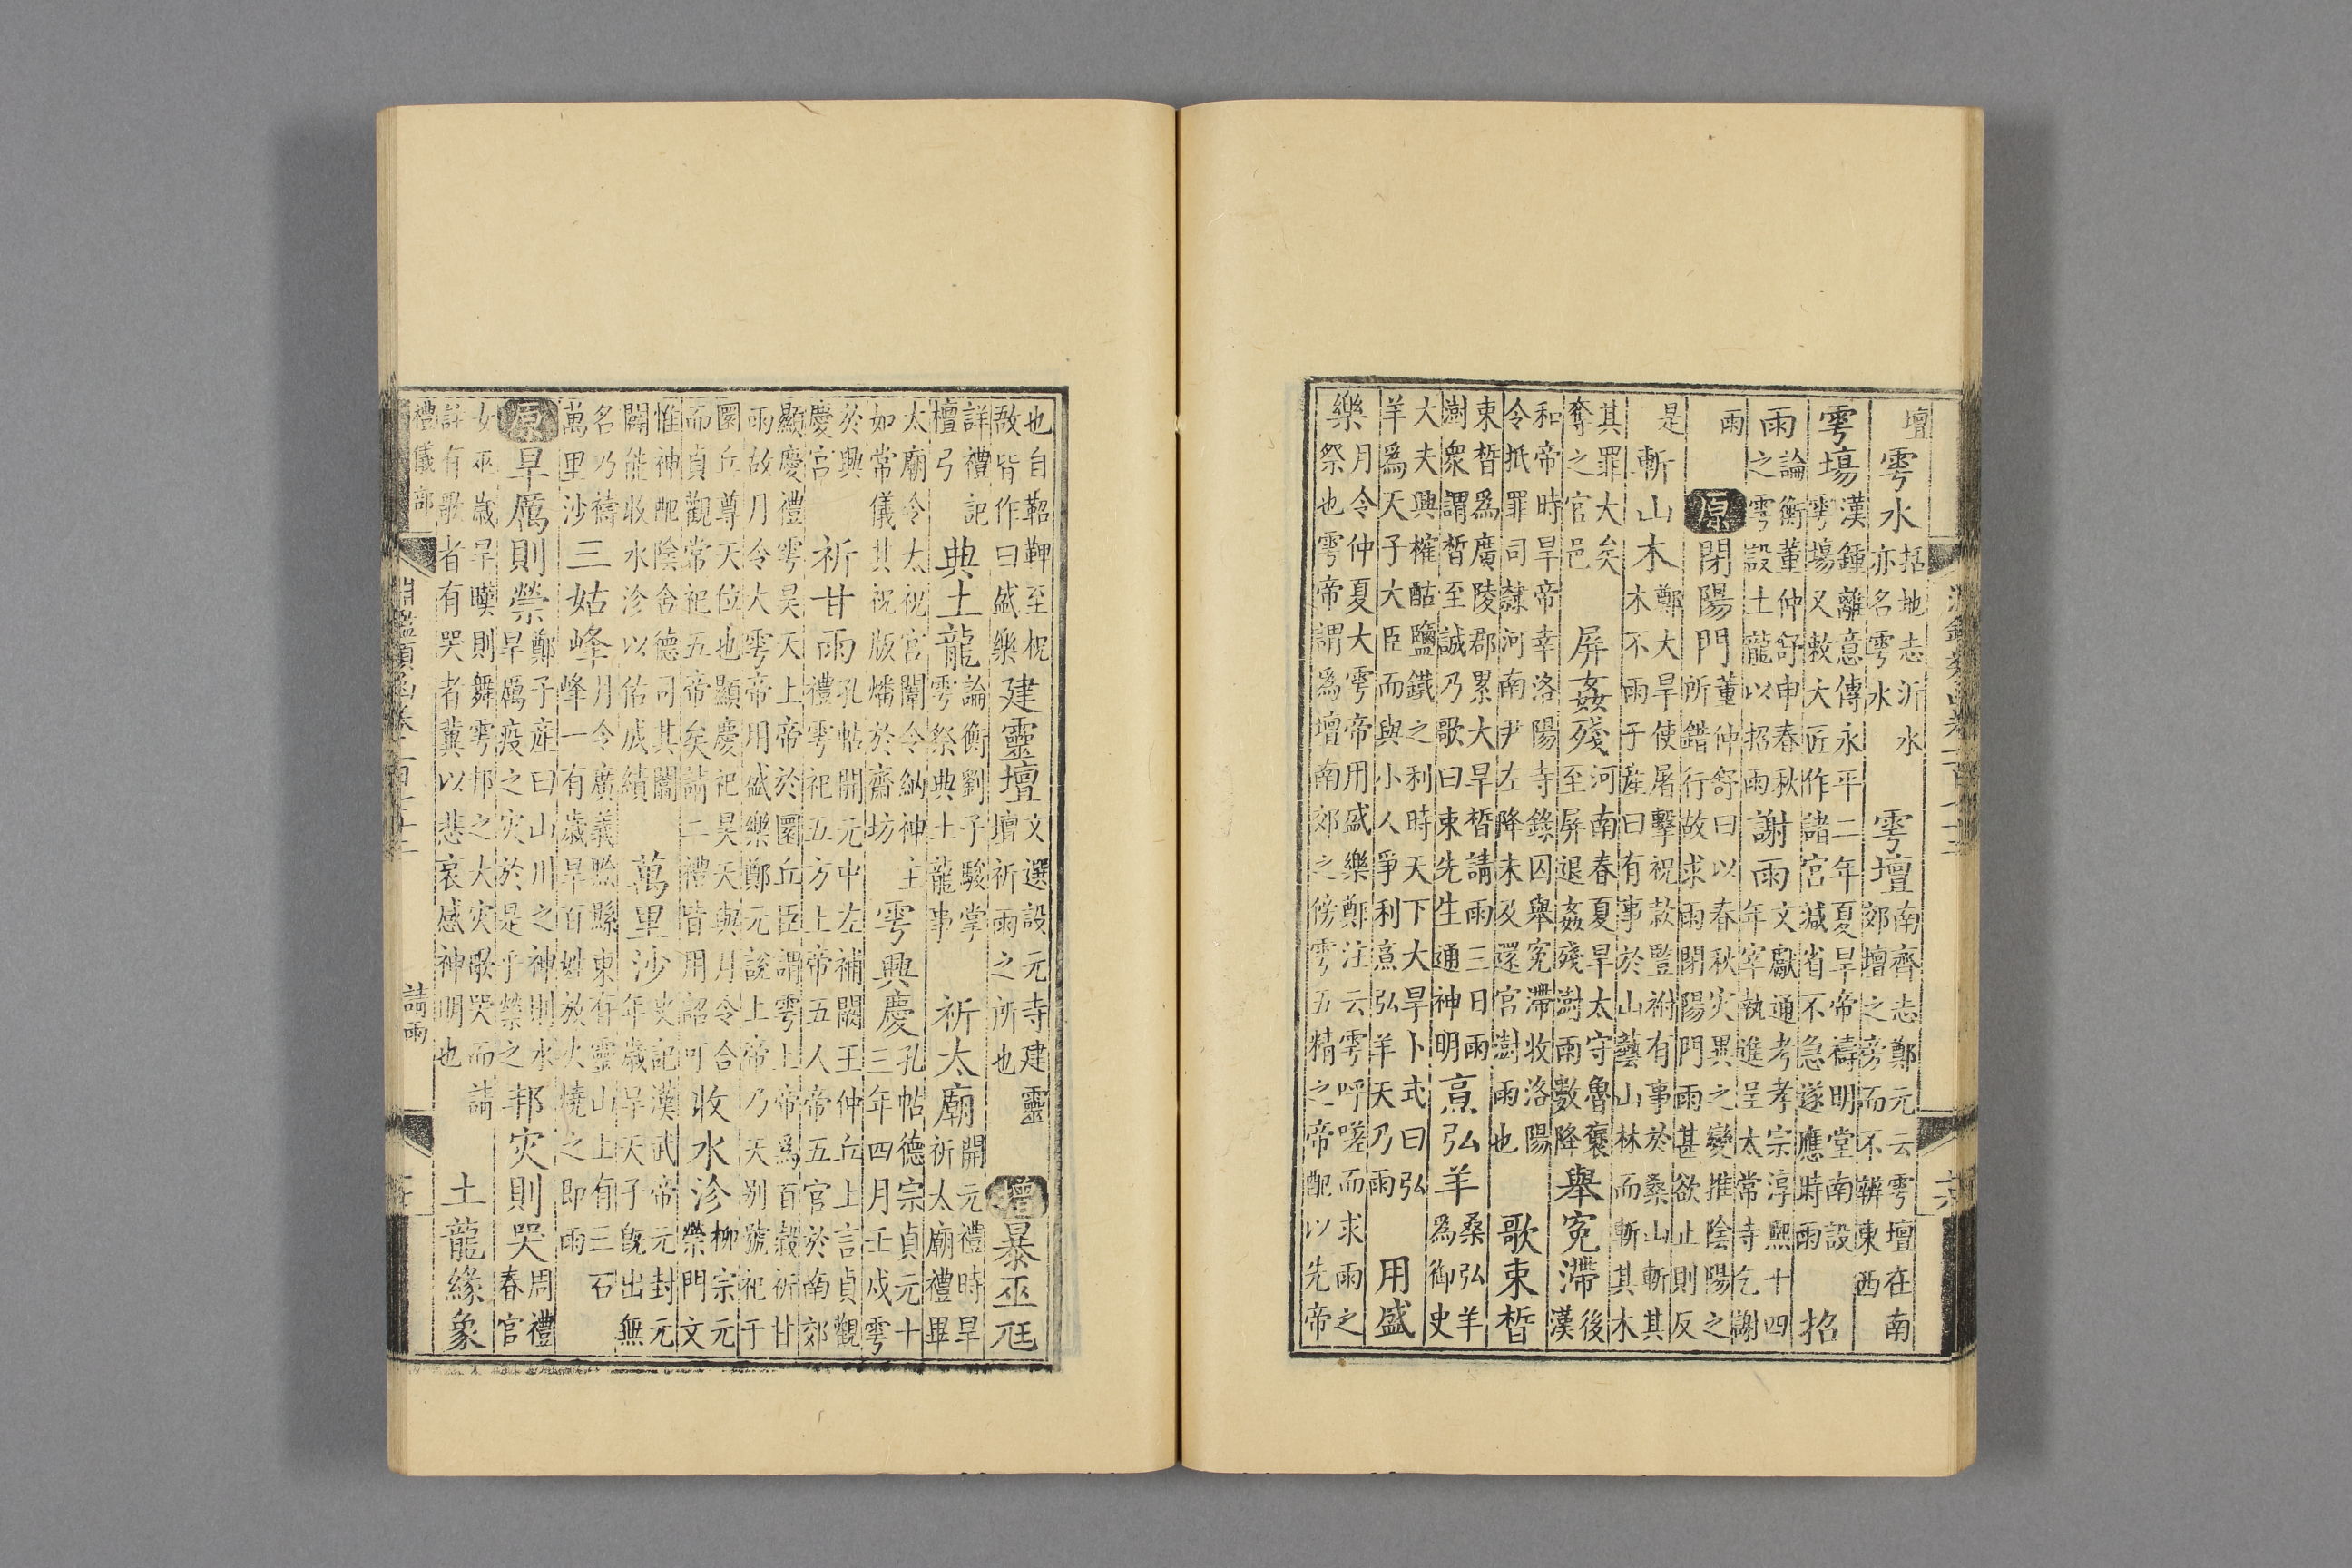 淵鑑類函卷一百七十三 十六
壇 雩水 括地志沂水亦名雩水 雩壇 南齊志鄭元云雩壇在南郊壇之旁而不辨東西
雩場 漢鍾離意傳永平二年夏旱帝禱明堂南設雩場又敕大匠作諸宮減省不急遂應時雨 招
雨 論衡董仲舒申春秋之雩設土龍以招雨 謝雨 文獻通考孝宗淳熙十四年宰執進呈太常寺乞謝
雨 原 閉陽門 董仲舒曰以春秋灾異之變推陰陽之所錯行故求雨閉陽門雨甚欲止則反
是 斬山木 鄭大旱使屠擊祝款豎柎有事於桑山斬其木不雨子產曰有事於山藝山林而斬其木
其罪大矣奪之官邑 屏姦殘 河南春夏旱太守魯褒至屏退姦殘澍雨數降 舉寃滯 後漢
和帝時旱帝幸洛陽寺錄囚舉寃滯收洛陽令抵罪司隸河南尹左降未及還宮澍雨也 歌束皙
束皙爲廣陵郡累大旱皙請雨三日雨澍衆謂皙至誠乃歌曰束先生通神明 烹弘羊 桑弘羊爲御史
大夫興榷酤鹽鐵之利時天下大旱卜式曰弘羊爲天子大臣而與小人爭利烹弘羊天乃雨 用盛
樂 月令仲夏大雩帝用盛樂鄭注云雩呼嗟而求雨之祭也雩帝謂爲壇南郊之傍雩五精之帝配以先帝
也自鞀鞞至柷敔皆作曰盛樂 建靈壇 文選設元寺建靈壇祈雨之所也 增 暴巫尪
詳禮記檀弓 典土龍 論衡劉子駿掌雩祭典土龍事 祈太廟 開元禮時旱祈太廟禮畢
太廟令太祝宮闈令納神主如常儀其祝版燔於齋坊 雩興慶 孔帖德宗貞元十三年四月壬戌雩
於興慶宮 祈甘雨 孔帖開元中左補闕王仲丘上言貞觀禮雩祀五方上帝五人帝五官於南郊
顯慶禮雩昊天上帝於圜丘臣謂雩上帝爲百穀祈甘雨故月令大雩帝用盛樂鄭元說上帝乃天别號祀于
圜丘尊天位也顯慶祀昊天與月令合而貞觀常祀五帝矣請二禮皆用詔可 收水沴 柳宗元禜門文
惟神配陰含德司其闔闢能收水沴以佑成績 萬里沙 史記漢武帝元封元年歲旱天子旣出無
名乃禱萬里沙 三姑峰 月令廣義黟縣東有靈山上有三石峰一有歲旱百姓放火燒之即雨
原 旱厲則禜 鄭子產曰山川之神則水旱厲疫之灾於是乎禜之 邦灾則哭 周禮春官
女巫歲旱暵則舞雩邦之大灾歌哭而請註有歌者有哭者冀以悲哀感神明也 土龍緣象
禮儀部 淵鑑類函卷一百七十三 請雨